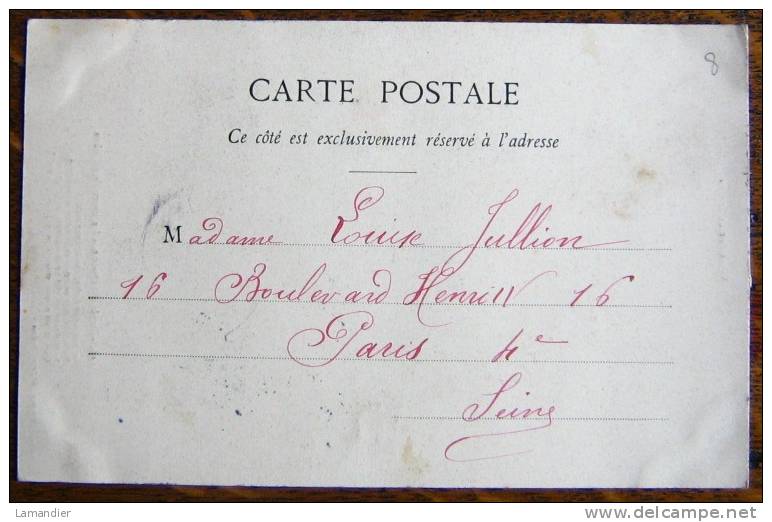 8
CARTE POSTALE
Ce côté est exclusivement réservé à l'adresse
Madame Louise Jullion
16 Boulevard Henri IV 16
Paris 4e
Seine
Lamandier
www.delcampe.net